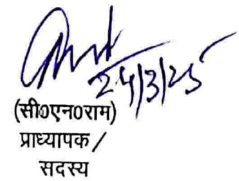 24/3/25
(सी०एन०राम)
प्राध्यापक /
सदस्य